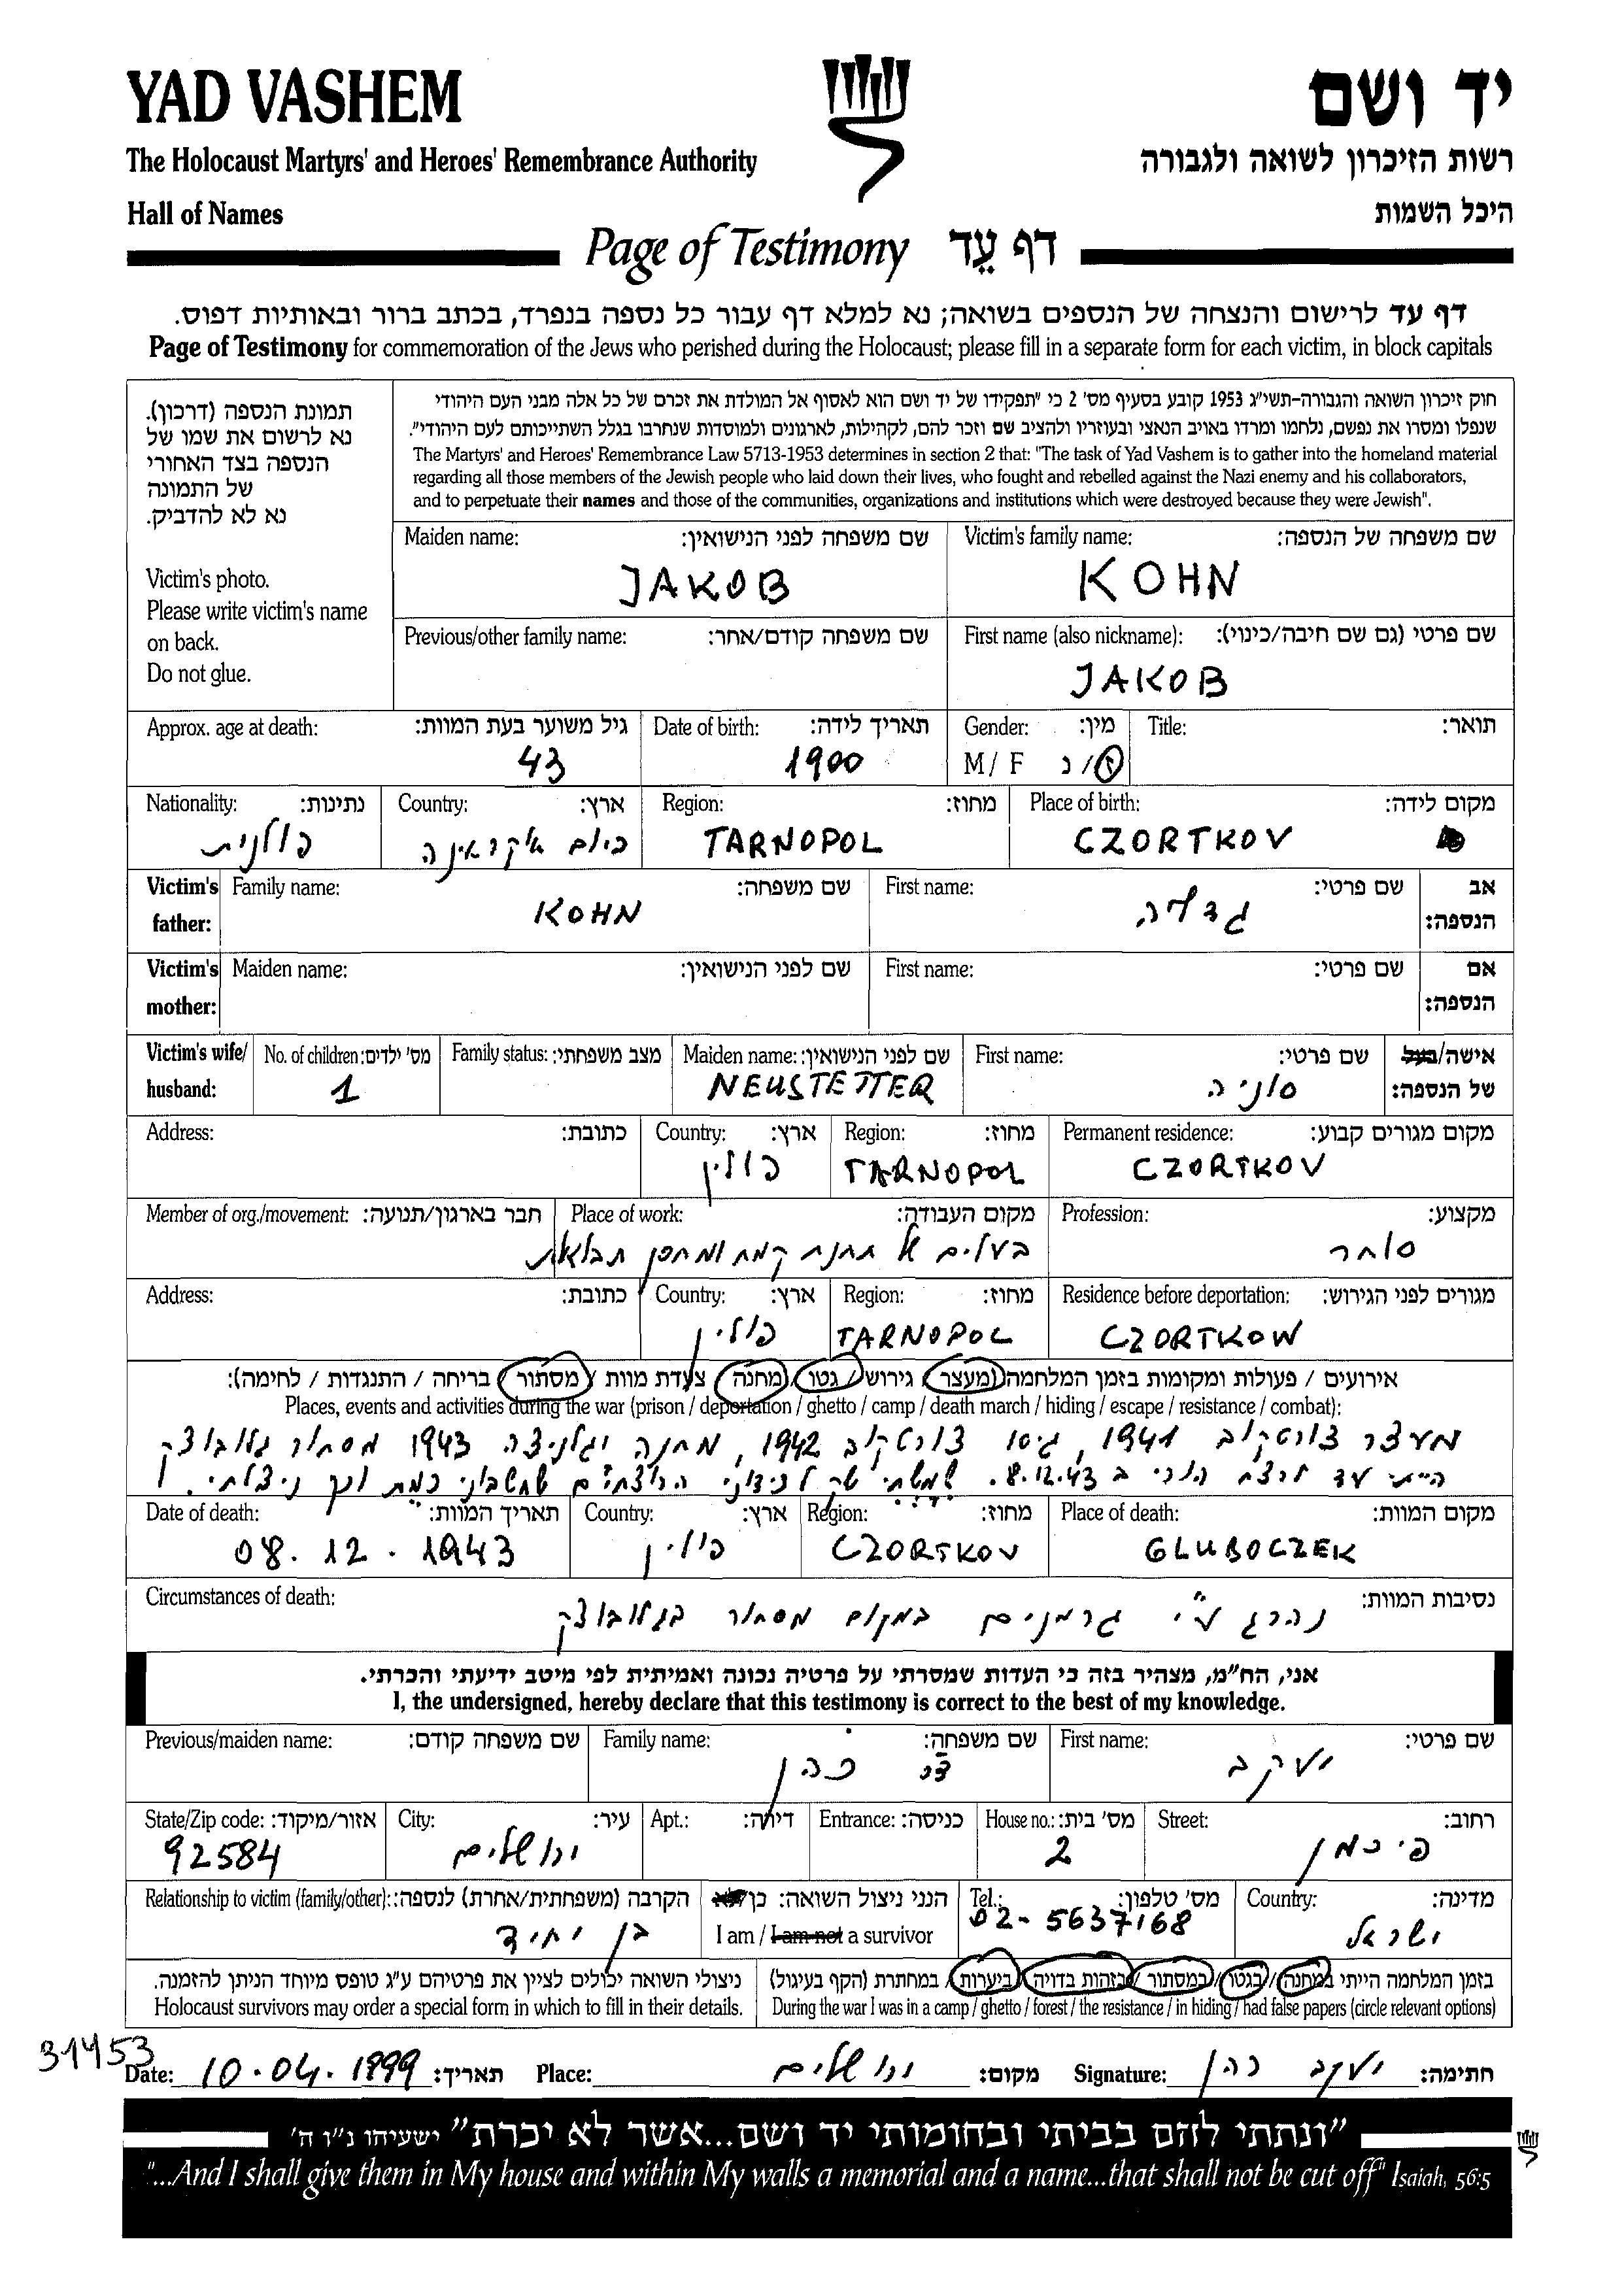 YAD VASHEM
יד ושם
The Holocaust Martyrs' and Heroes' Remembrance Authority
רשות הזיכרון לשואה ולגבורה
Hall of Names
היכל השמות
Page of Testimony דף עֵד
דף עד לרישום והנצחה של הנספים בשואה; נא למלא דף עבור כל נספה בנפרד, בכתב ברור ובאותיות דפוס.
Page of Testimony for commemoration of the Jews who perished during the Holocaust; please fill in a separate form for each victim, in block capitals
תמונת הנספה (דרכון).
נא לרשום את שמו של
הנספה בצד האחורי
של התמונה
נא לא להדביק.
Victim's photo.
Please write victim's name
on back.
Do not glue.
חוק זיכרון השואה והגבורה-תשי"ג 1953 קובע בסעיף מס' 2 כי "תפקידו של יד ושם הוא לאסוף אל המולדת את זכרם של כל אלה מבני העם היהודי
שנפלו ומסרו את נפשם, נלחמו ומרדו באויב הנאצי ובעוזריו ולהציב שם וזכר להם, לקהילות, לארגונים ולמוסדות שנחרבו בגלל השתייכותם לעם היהודי".
The Martyrs' and Heroes' Remembrance Law 5713-1953 determines in section 2 that: "The task of Yad Vashem is to gather into the homeland material
regarding all those members of the Jewish people who laid down their lives, who fought and rebelled against the Nazi enemy and his collaborators,
and to perpetuate their names and those of the communities, organizations and institutions which were destroyed because they were Jewish".
Victim's family name: שם משפחה של הנספה:
KOHN
Maiden name: שם משפחה לפני הנישואין:
JAKOB
First name (also nickname): שם פרטי (גם שם חיבה/כינוי):
JAKOB
Previous/other family name: שם משפחה קודם/אחר:
Title: תואר:
Gender: מין:
M/ F ז/ נ
Date of birth: תאריך לידה:
1900
Approx. age at death: גיל משוער בעת המוות:
43
Place of birth: מקום לידה:
CZORTKOV
Region: מחוז:
TARNOPOL
Country: ארץ:
כולם אוקראינה
Nationality: נתינות:
פולנית
Victim's father: אב הנספה:
First name: שם פרטי:
גדליה
Family name: שם משפחה:
KOHN
Victim's mother: אם הנספה:
First name: שם פרטי:
Maiden name: שם לפני הנישואין:
Victim's wife/ husband: אישה/בעל של הנספה:
First name: שם פרטי:
סוניה
Maiden name: שם לפני הנישואין:
NEUSTETTER
Family status: מצב משפחתי:
No. of children: מס' ילדים:
1
Permanent residence: מקום מגורים קבוע:
CZORTKOV
Region: מחוז:
TARNOPOL
Country: ארץ:
פולין
Address: כתובת:
Profession: מקצוע:
סוחר
Place of work: מקום העבודה:
בעלים של תחנת קמח ומחסן תבואות
Member of org./movement: חבר בארגון/תנועה:
Residence before deportation: מגורים לפני הגירוש:
CZORTKOW
Region: מחוז:
TARNOPOL
Country: ארץ:
פולין
Address: כתובת:
אירועים / פעולות ומקומות בזמן המלחמה (מעצר / גירוש / גטו / מחנה / צעדת מוות / מסתור / בריחה / התנגדות / לחימה):
Places, events and activities during the war (prison / deportation / ghetto / camp / death march / hiding / escape / resistance / combat):
מעצר צורטקוב 1941, גיטו צורטקוב 1942, מחנה יגלניצה 1943 מסתור גלובוצק
הייתי עד לרצח הורי ב 8.12.43. הרוצחים שחשבוני כמת וכך ניצלתי.
Place of death: מקום המוות:
GLUBOCZEK
Region: מחוז:
CZORTKOV
Country: ארץ:
פולין
Date of death: תאריך המוות:
08.12.1943
Circumstances of death: נסיבות המוות:
נהרג ע"י גרמנים במקום מסתור בגלובוצק
אני, הח"מ, מצהיר בזה כי העדות שמסרתי על פרטיה נכונה ואמיתית לפי מיטב ידיעתי והכרתי.
I, the undersigned, hereby declare that this testimony is correct to the best of my knowledge.
First name: שם פרטי:
יעקב
Family name: שם משפחה:
כהן
Previous/maiden name: שם משפחה קודם:
Street: רחוב:
פיכמן
House no.: מס' בית:
2
Entrance: כניסה:
Apt.: דירה:
City: עיר:
ירושלים
State/Zip code: אזור/מיקוד:
92584
Country: מדינה:
ישראל
Tel.: מס' טלפון:
02-5637168
הנני ניצול השואה: כן
I am / I am not a survivor
Relationship to victim (family/other): הקרבה (משפחתית/אחרת) לנספה:
בן יחיד
בזמן המלחמה הייתי במחנה / בגטו / במסתור / בזהות בדויה / ביערות / במחתרת (הקף בעיגול)
During the war I was in a camp / ghetto / forest / the resistance / in hiding / had false papers (circle relevant options)
ניצולי השואה יכולים לציין את פרטיהם ע"ג טופס מיוחד הניתן להזמנה.
Holocaust survivors may order a special form in which to fill in their details.
31453
Date: 10.04.1899 תאריך: Place: ירושלים מקום: Signature: יעקב כהן חתימה:
"ונתתי להם בביתי ובחומותי יד ושם...אשר לא יכרת" ישעיהו נ"ו ה'
"...And I shall give them in My house and within My walls a memorial and a name...that shall not be cut off" Isaiah, 56:5